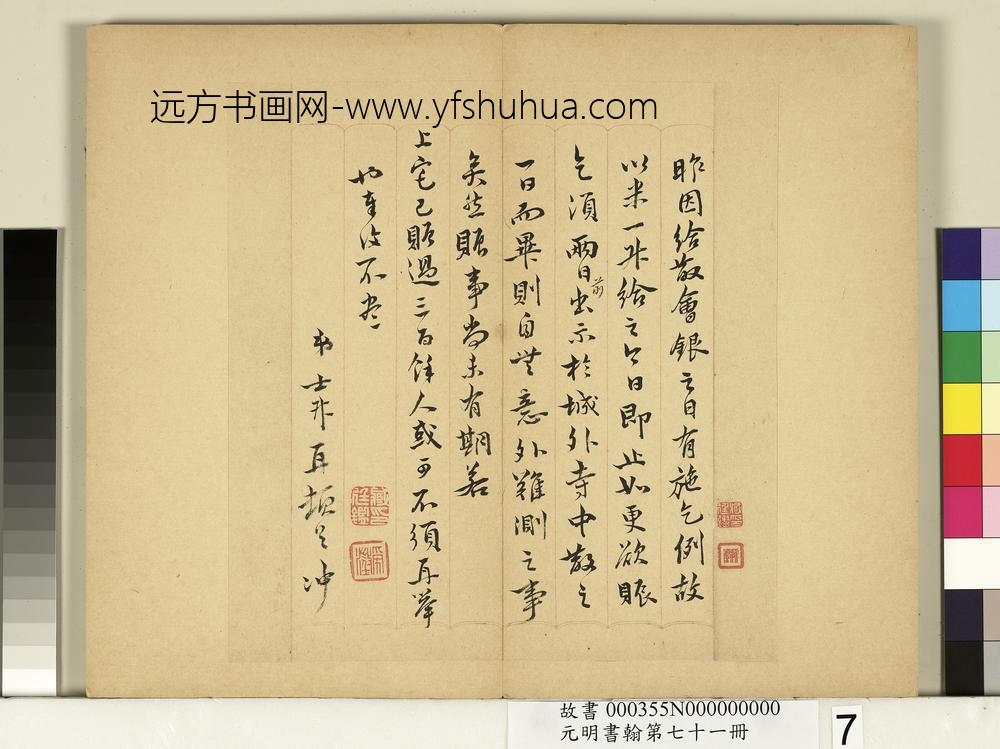 远方书画网-www.yfshuhua.com
昨因給散會銀之日有施乞例故
以米一升給之今日即止如更欲賑
乞須兩日前出示於城外寺中散之
一日而畢則自無意外難測之事
矣然賑事尚未有期若
上宅已賑過三百餘人或可不須再舉
也草後不盡
弟士升再頓首 冲
故書 000355N000000000
元明書翰第七十一冊
7